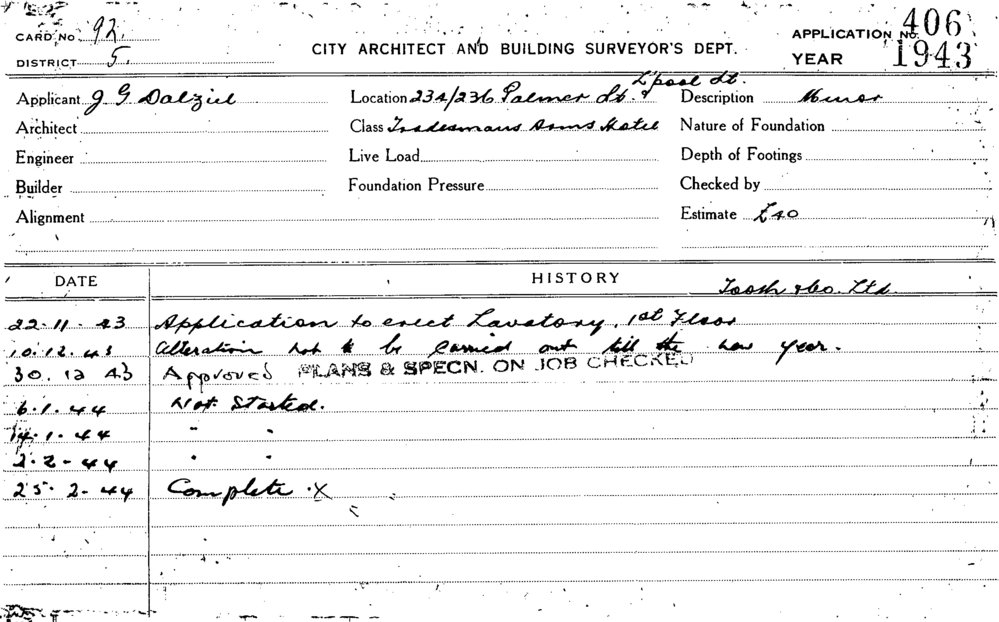 CARD No 92.
DISTRICT 5.
CITY ARCHITECT AND BUILDING SURVEYOR'S DEPT.
APPLICATION No. 406
YEAR 1943
Applicant J G Dalziel
Location 234/236 Palmer St. & L'pool St.
Description Minor
Architect
Class Tradesmans Arms Hotel
Nature of Foundation
Engineer
Live Load
Depth of Footings
Builder
Foundation Pressure
Checked by
Alignment
Estimate £40
DATE
HISTORY
Tooth & Co. Ltd.
22.11.43 Application to erect Lavatory, 1st Floor
10.12.43 Alteration not to be carried out till the new year.
30.12 43 Approved PLANS & SPECN. ON JOB CHECKED
6.1.44 Not Started.
14.1.44 " "
2.2-44 " "
25.2-44 Complete .X